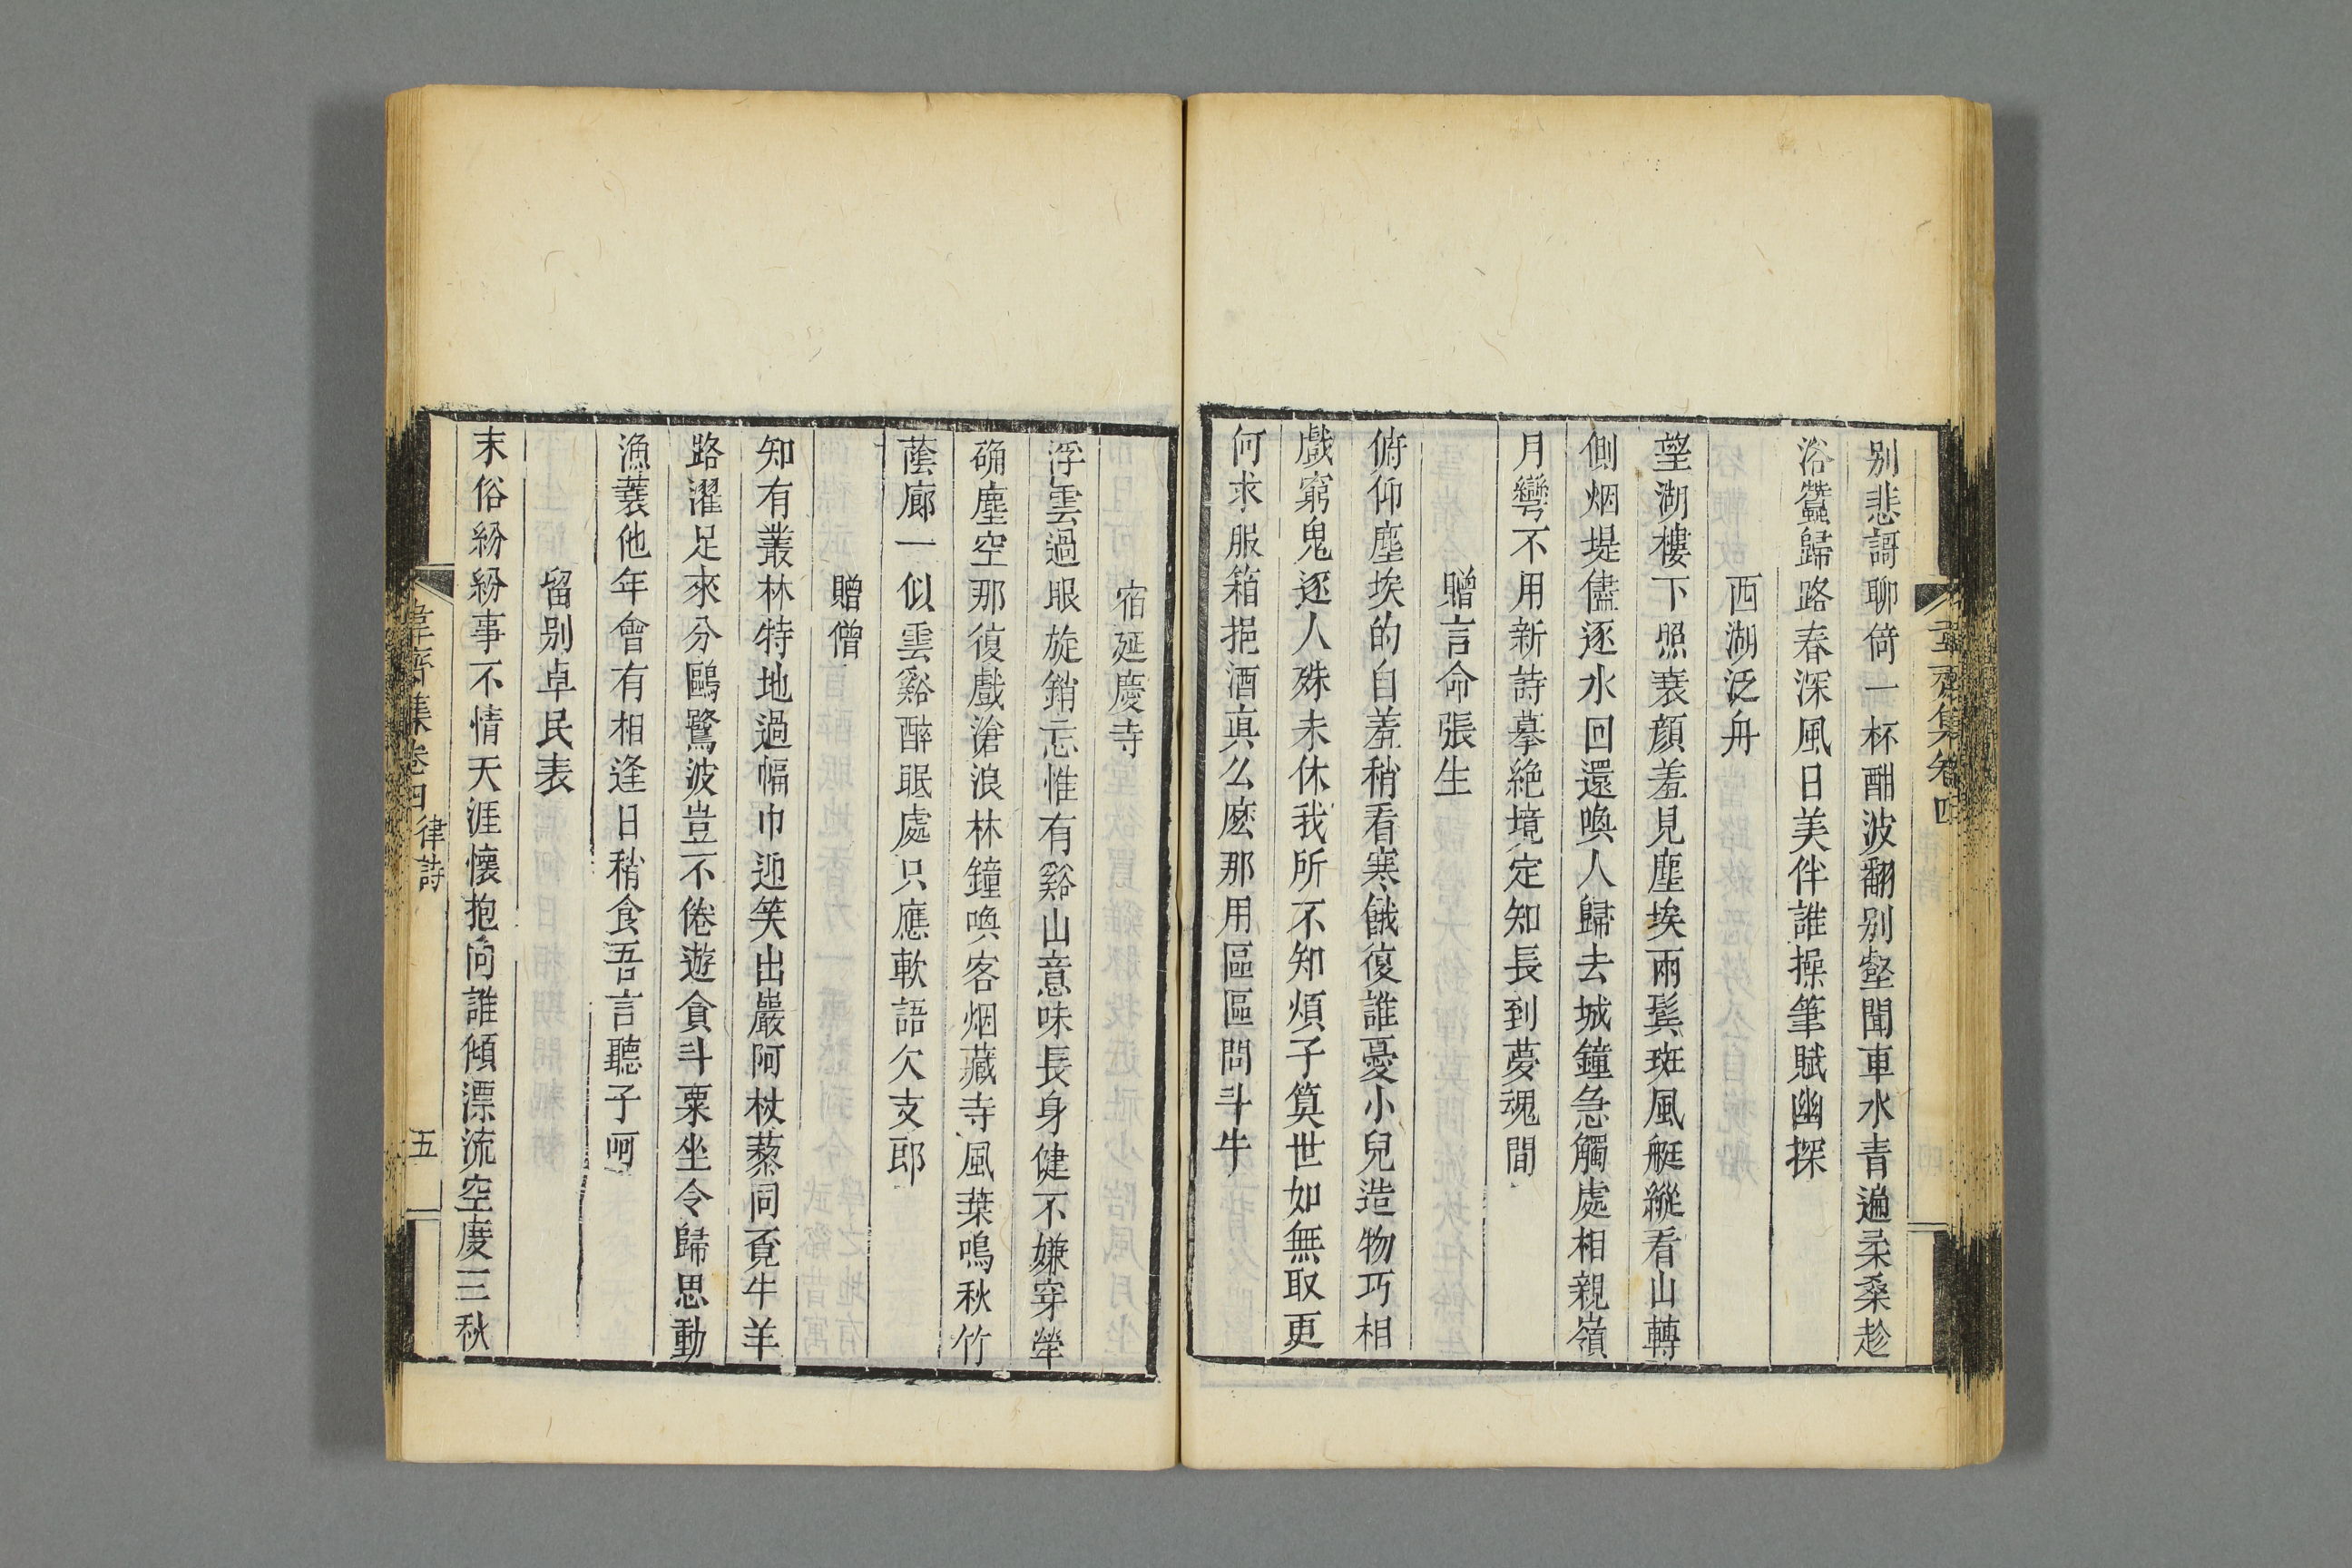 別悲謌聊倚一杯酣波翻別壑聞車水青遍柔桑趁
浴蠶歸路春深風日美伴誰操筆賦幽探
西湖泛舟
望湖樓下照衰顔羞見塵埃兩鬂斑風艇縱看山轉
側烟堤儘逐水回還喚人歸去城鐘急觸處相親嶺
月彎不用新詩摹絶境定知長到夢魂間
贈言命張生
俯仰塵埃的自羞稍看寒餓復誰憂小兒造物巧相
戲窮鬼逐人殊未休我所不知煩子筭世如無取更
何求服箱挹酒真么麽那用區區問斗牛
宿延慶寺
浮雲過眼旋銷忘惟有谿山意味長身健不嫌穿犖
确塵空那復戲滄浪林鐘喚客烟藏寺風葉鳴秋竹
蔭廊一似雲谿醉眠處只應軟語欠支郎
贈僧
知有叢林特地過幅巾迎笑出巖阿杖藜同覓牛羊
路濯足來分鷗鷺波豈不倦遊貪斗粟坐令歸思動
漁蓑他年會有相逢日稍食吾言聽子呵
留別卓民表
末俗紛紛事不情天涯懷抱向誰傾漂流空度三秋
韋齋集卷四 律詩 五